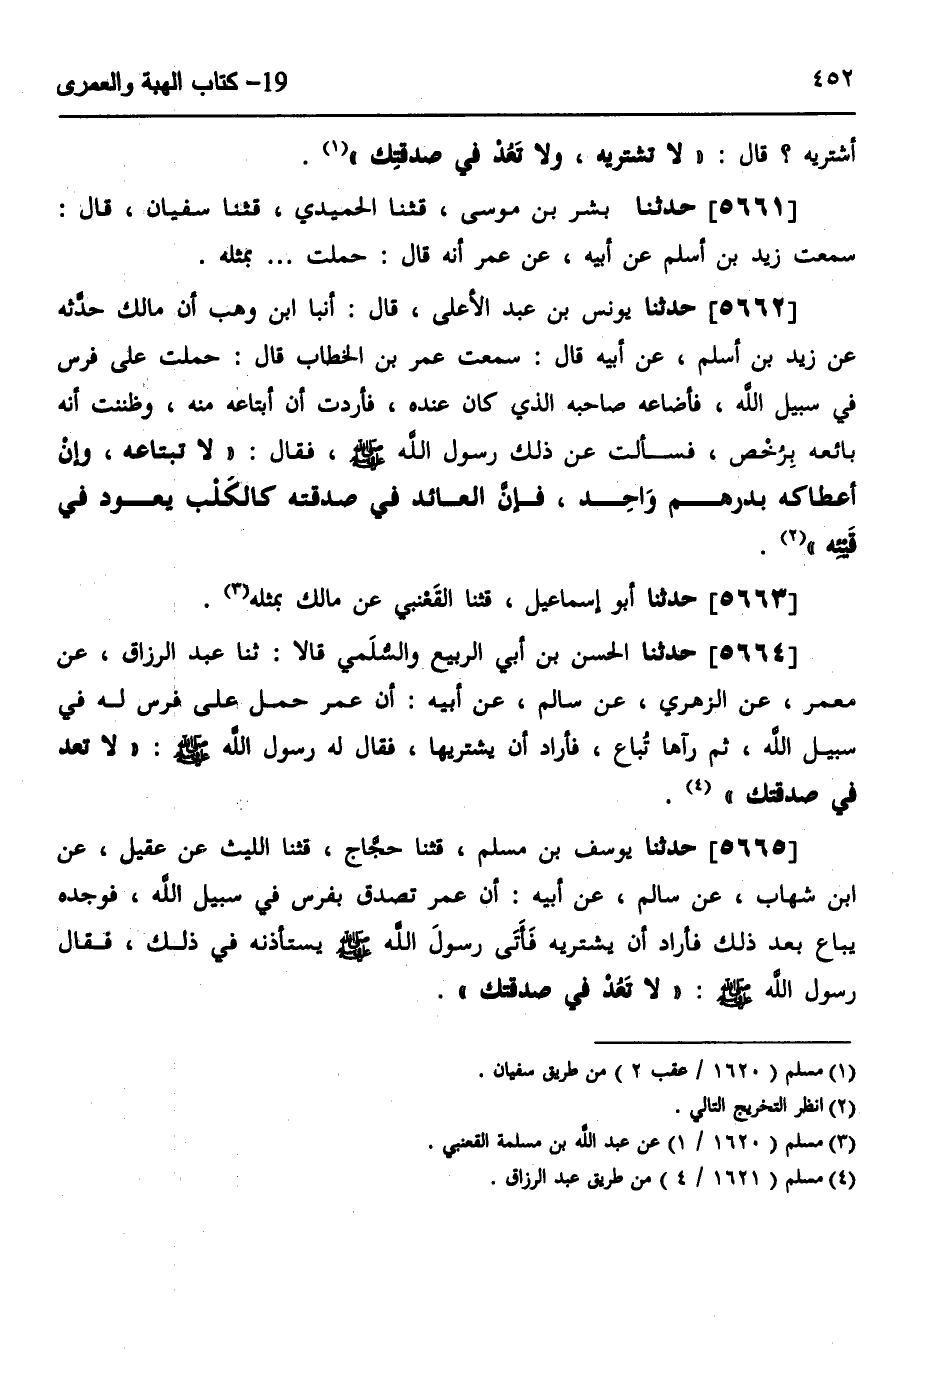 ٤٥٢
19- كتاب الهبة والعمرى
أشتريه ؟ قال : « لا تشتريه ، ولا تَعُدْ في صدقتِك »(١) .
[٥٦٦١] حدثنا بشر بن موسى ، قثنا الحميدي ، قثنا سفيان ، قال :
سمعت زيد بن أسلم عن أبيه ، عن عمر أنه قال : حملت ... بمثله .
[٥٦٦٢] حدثنا يونس بن عبد الأعلى ، قال : أنبا ابن وهب أن مالك حدَّثه
عن زيد بن أسلم ، عن أبيه قال : سمعت عمر بن الخطاب قال : حملت على فرس
في سبيل اللَّه ، فأضاعه صاحبه الذي كان عنده ، فأردت أن أبتاعه منه ، وظننت أنه
بائعه بِرُخْص ، فسألت عن ذلك رسول اللَّه ﷺ ، فقال : « لا تبتاعه ، وإنْ
أعطاكه بدرهم وَاحِد ، فإنَّ العائد في صدقته كالكَلْب يعود في
قَيْئِه »(٢) .
[٥٦٦٣] حدثنا أبو إسماعيل ، قثنا القَعْنبي عن مالك بمثله(٣) .
[٥٦٦٤] حدثنا الحسن بن أبي الربيع والسُّلَمي قالا : ثنا عبد الرزاق ، عن
معمر ، عن الزهري ، عن سالم ، عن أبيه : أن عمر حمل على فرس له في
سبيل اللَّه ، ثم رآها تُباع ، فأراد أن يشتريها ، فقال له رسول اللَّه ﷺ : « لا تعد
في صدقتك » (٤) .
[٥٦٦٥] حدثنا يوسف بن مسلم ، قثنا حجَّاج ، قثنا الليث عن عقيل ، عن
ابن شهاب ، عن سالم ، عن أبيه : أن عمر تصدق بفرس في سبيل اللَّه ، فوجده
يباع بعد ذلك فأراد أن يشتريه فَأَتَى رسولَ اللَّه ﷺ يستأذنه في ذلك ، فقال
رسول اللَّه ﷺ : « لا تَعُدْ في صدقتك » .
(١) مسلم ( ١٦٢٠ / عقب ٢ ) من طريق سفيان .
(٢) انظر التخريج التالي .
(٣) مسلم ( ١٦٢٠ / ١) عن عبد اللَّه بن مسلمة القعنبي .
(٤) مسلم ( ١٦٢١ / ٤ ) من طريق عبد الرزاق .